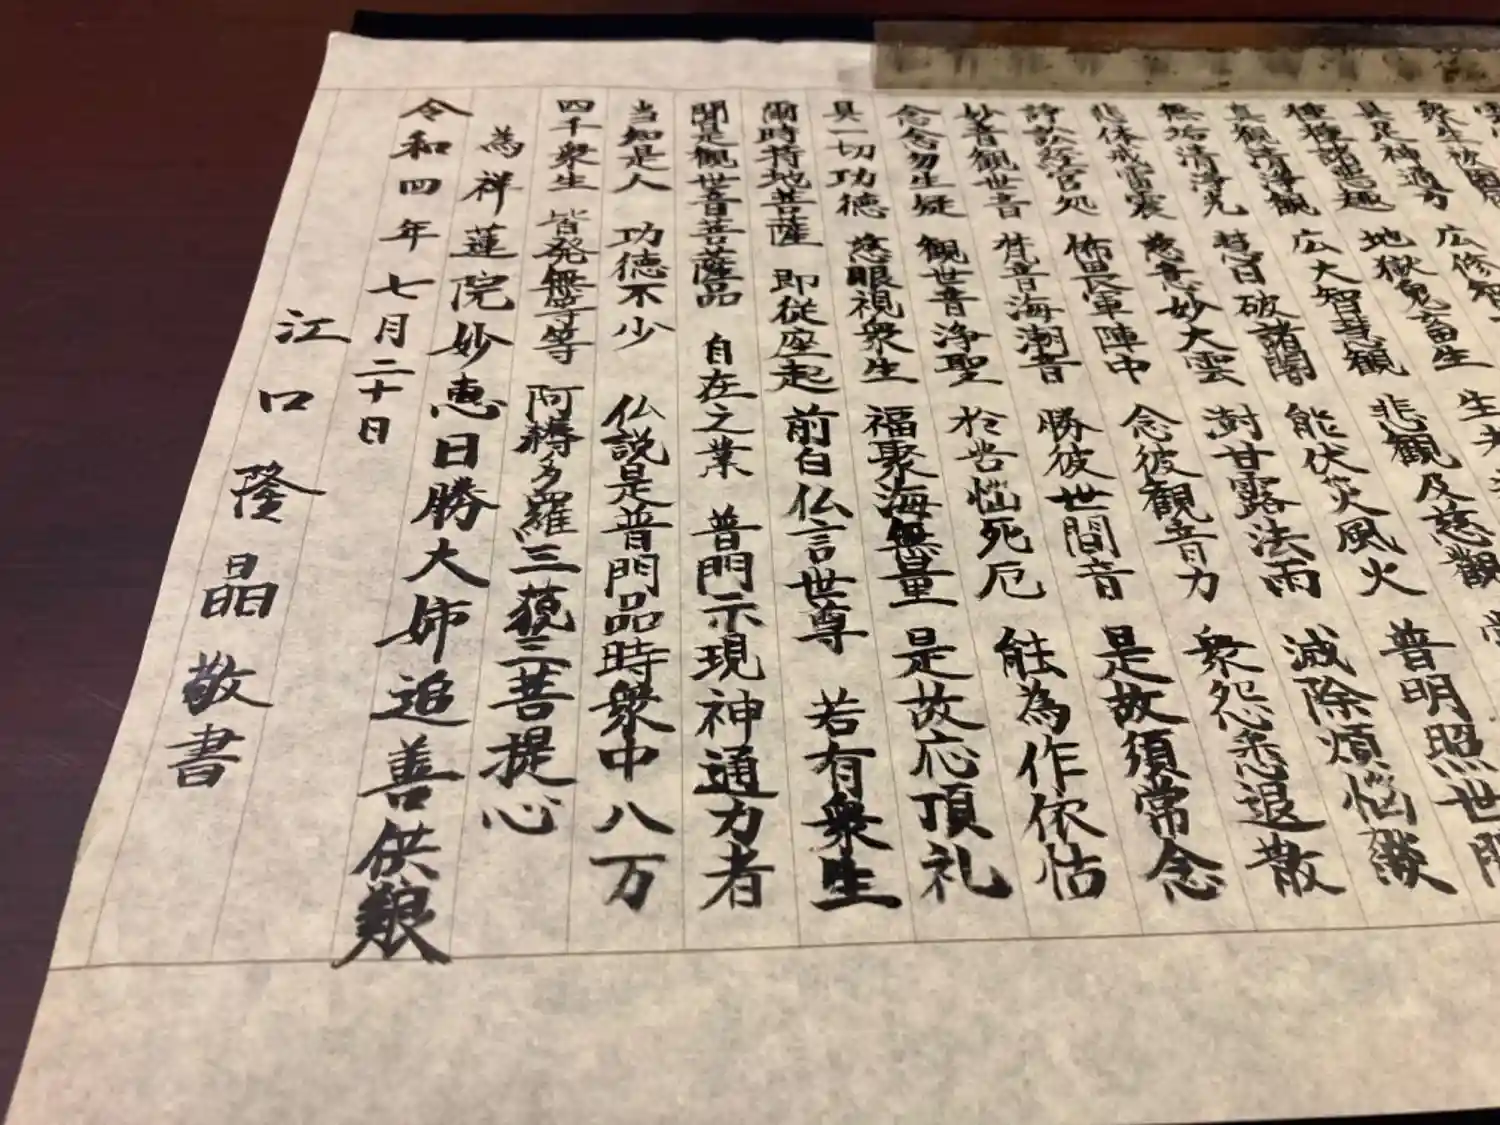 衆生被困
具足神通力 広修智
種種諸悪趣 地獄鬼畜生 生老
真観清浄観 広大智慧観 悲観及慈観
無垢清浄光 慧日破諸闇 能伏災風火 普明照世間
悲体戒雷震 慈意妙大雲 澍甘露法雨 滅除煩悩燄
諍訟経官処 怖畏軍陣中 念彼観音力 衆怨悉退散
妙音観世音 梵音海潮音 勝彼世間音 是故須常念
念念勿生疑 観世音浄聖 於苦悩死厄 能為作依怙
具一切功徳 慈眼視衆生 福聚海無量 是故応頂礼
爾時持地菩薩 即従座起 前白仏言世尊 若有衆生
聞是観世音菩薩品 自在之業 普門示現 神通力者
当知是人 功徳不少 仏説是普門品時衆中八万
四千衆生 皆発無等等 阿耨多羅三藐三菩提心
為祥蓮院妙恵日勝大姉追善供
令和四年七月二十日
江口隆晶敬書